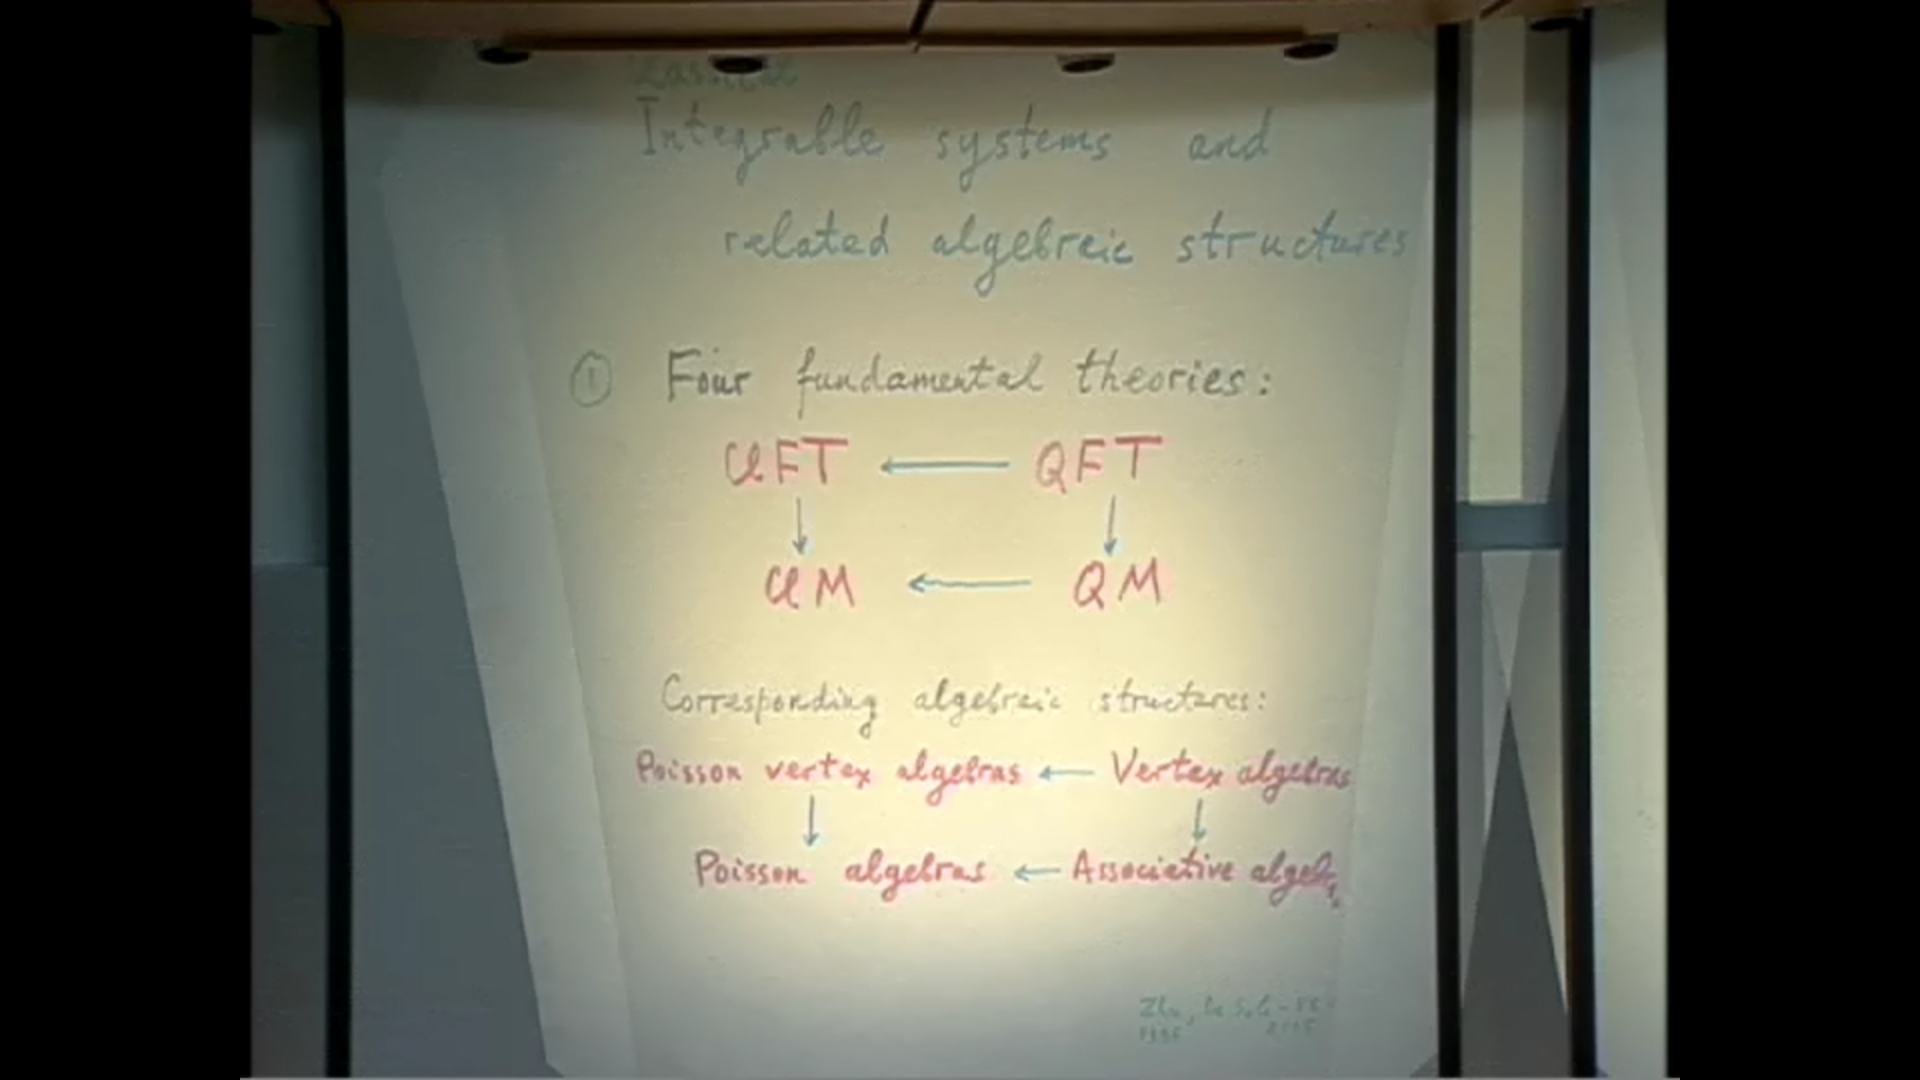 Integrable systems and
related algebraic structures
① Four fundamental theories:
ClFT ← QFT
↓ ↓
ClM ← QM
Corresponding algebraic structures:
Poisson vertex algebras ← Vertex algebras
↓ ↓
Poisson algebras ← Associative algebr
Zhu,